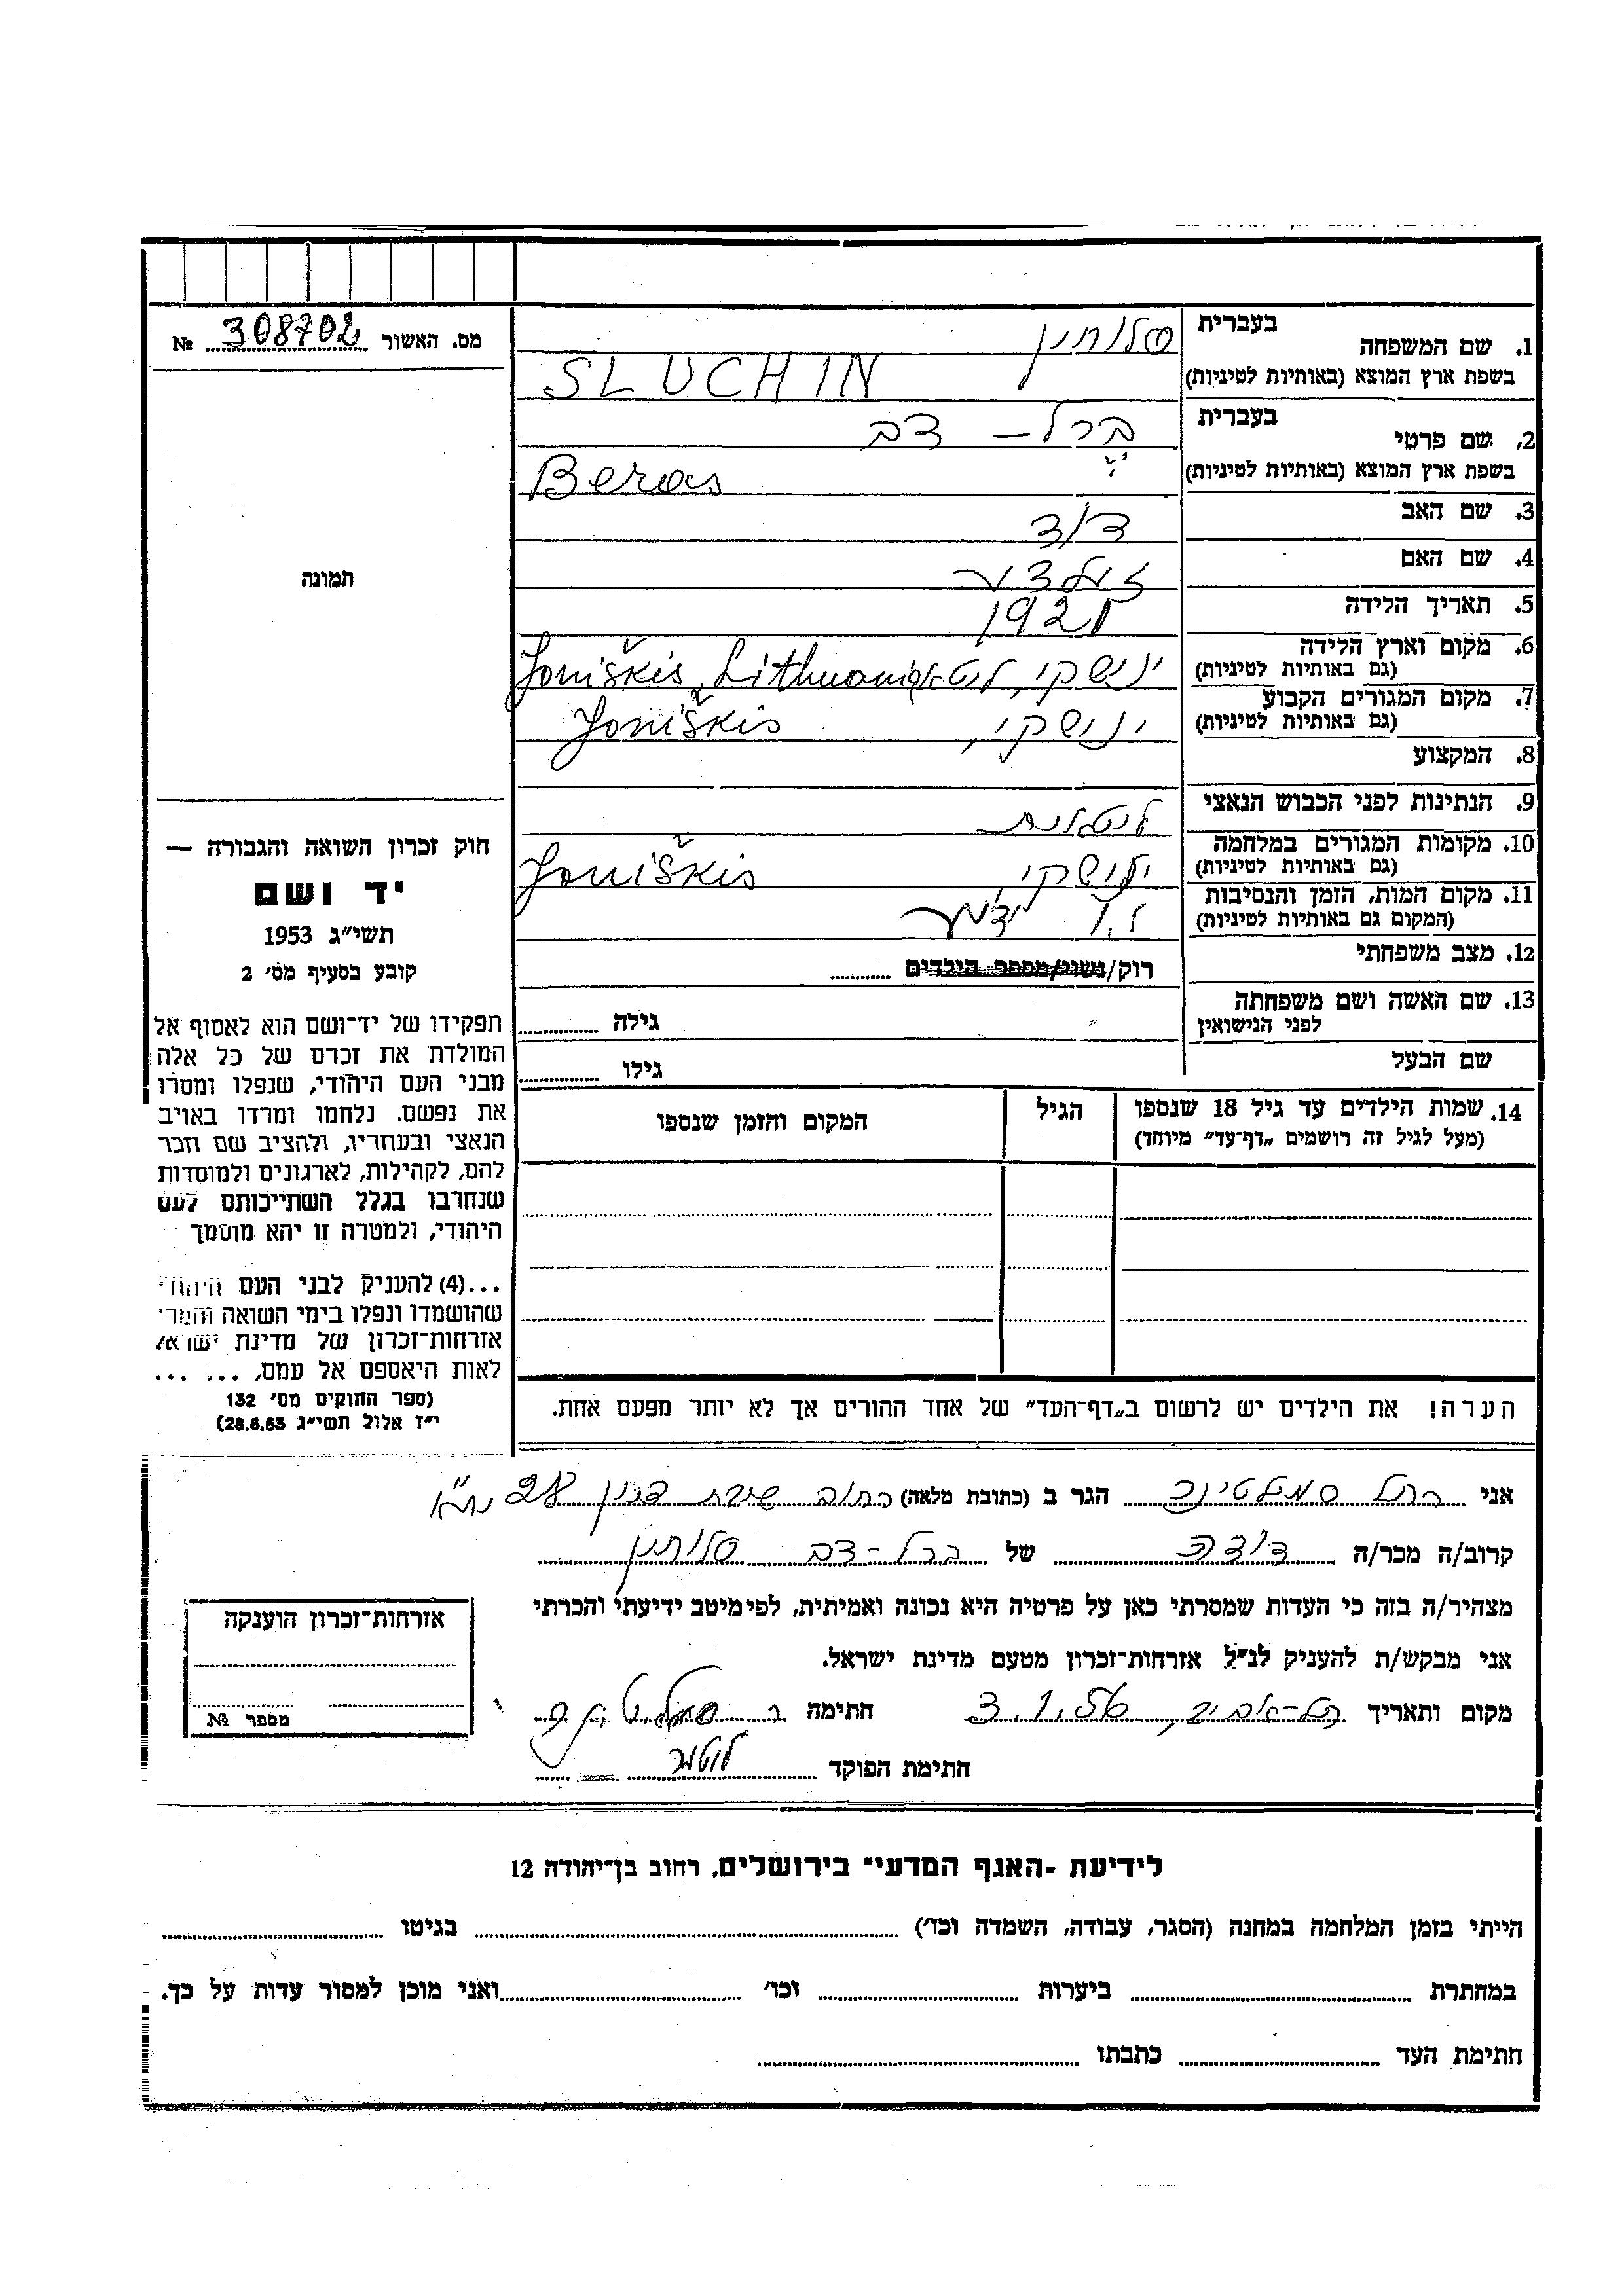 מס. האשור 308702 №
תמונה
חוק זכרון השואה והגבורה —
יד ושם
תשי״ג 1953
קובע בסעיף מס׳ 2
תפקידו של יד־ושם הוא לאסוף אל
המולדת את זכרם של כל אלה
מבני העם היהודי, שנפלו ומסרו
את נפשם, נלחמו ומרדו באויב
הנאצי ובעוזריו, ולהציב שם וזכר
להם, לקהילות, לארגונים ולמוסדות
שנחרבו בגלל השתייכותם לעם
היהודי, ולמטרה זו יהא מוסמך
...(4) להעניק לבני העם היהודי
שהושמדו ונפלו בימי השואה והמרי
אזרחות־זכרון של מדינת ישראל
לאות היאספם אל עמם, ... ...
(ספר החוקים מס׳ 132
י״ז אלול תשי״ג 28.8.53)
בעברית
1. שם המשפחה סלוחין
בשפת ארץ המוצא (באותיות לטיניות) SLUCHIN
בעברית
2. שם פרטי ברל – דב
בשפת ארץ המוצא (באותיות לטיניות) Beras
3. שם האב דוד
4. שם האם זלדה
5. תאריך הלידה 1921
6. מקום וארץ הלידה
(גם באותיות לטיניות) ינישקי, ליטא Joniškis, Lithuania
7. מקום המגורים הקבוע
(גם באותיות לטיניות) ינישקי, Joniškis
8. המקצוע
9. הנתינות לפני הכבוש הנאצי ליטאית
10. מקומות המגורים במלחמה
(גם באותיות לטיניות) ינישקי Joniškis
11. מקום המות, הזמן והנסיבות
(המקום גם באותיות לטיניות) לא ידוע
12. מצב משפחתי רוק/נשוי/מספר הילדים
13. שם האשה ושם משפחתה
לפני הנישואין גילה
שם הבעל גילו
14. שמות הילדים עד גיל 18 שנספו הגיל המקום והזמן שנספו
(מעל לגיל זה רושמים „דף־עד״ מיוחד)
הערה! את הילדים יש לרשום ב„דף־העד״ של אחד ההורים אך לא יותר מפעם אחת.
אני רחל הגר ב (כתובת מלאה) רחוב שיבת ציון 28 ת״א
קרוב/ה מכר/ה דודה של ברל-דב סלוחין
מצהיר/ה בזה כי העדות שמסרתי כאן על פרטיה היא נכונה ואמיתית, לפי מיטב ידיעתי והכרתי
אני מבקש/ת להעניק לנ״ל אזרחות־זכרון מטעם מדינת ישראל.
מקום ותאריך תל-אביב, 3.1.56 חתימה
חתימת הפוקד
אזרחות־זכרון הוענקה
מספר №
לידיעת -האגף המדעי״ בירושלים, רחוב בן־יהודה 12
הייתי בזמן המלחמה במחנה (הסגר, עבודה, השמדה וכו׳) בגיטו
במחתרת ביערות וכו׳ ואני מוכן למסור עדות על כך.
חתימת העד כתבתו